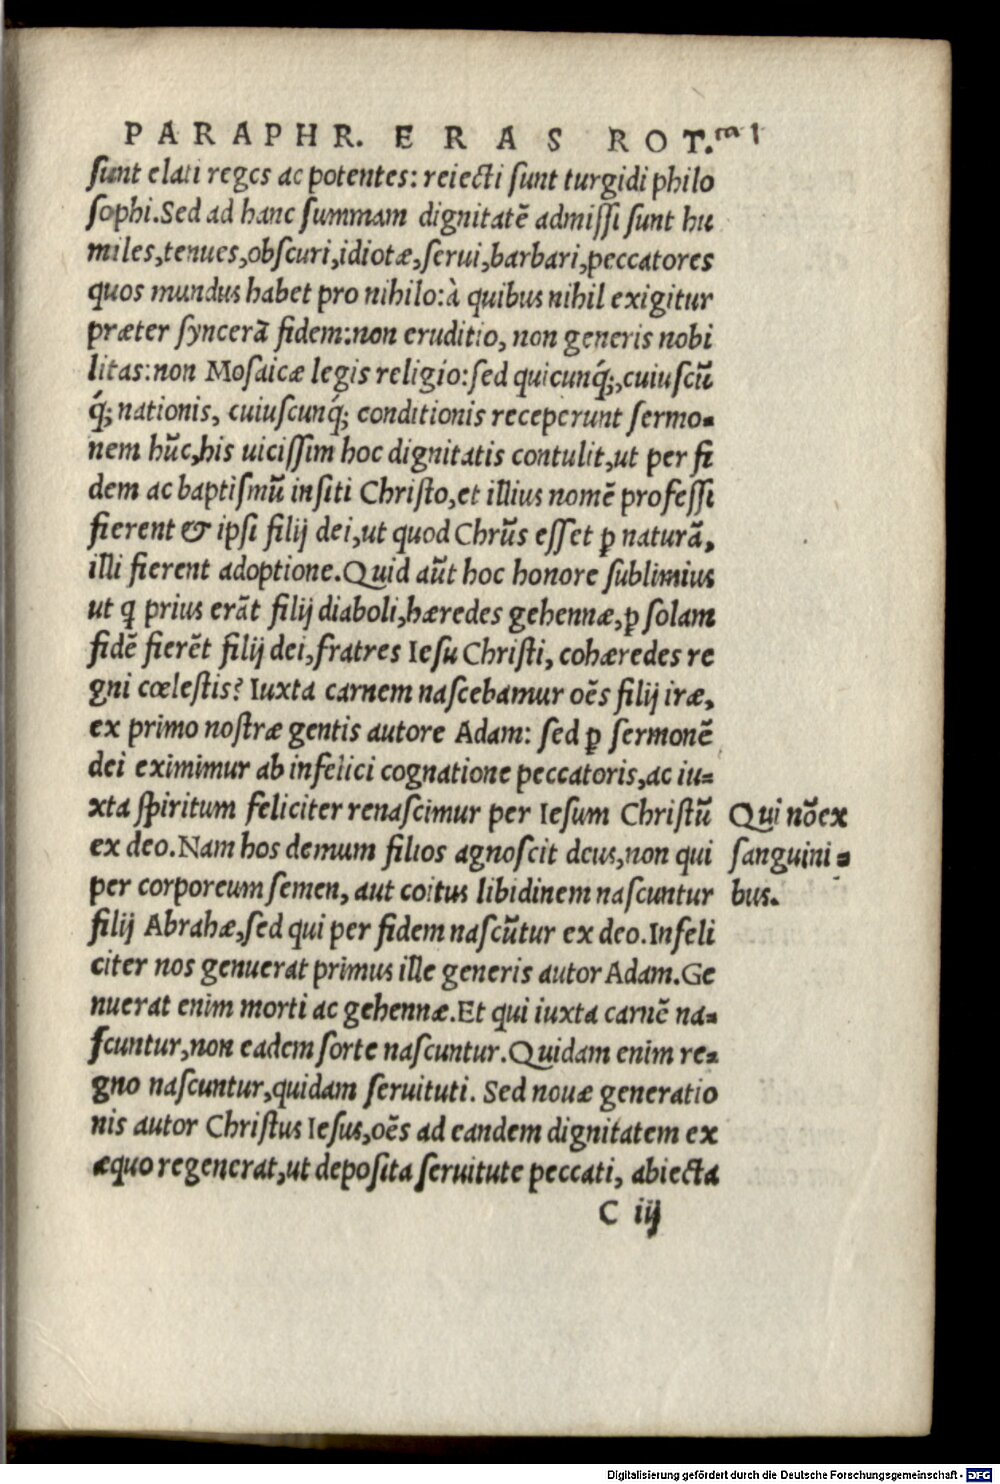 PARAPHR. ERAS ROT.
sunt elati reges ac potentes: reiecti sunt turgidi philo
sophi. Sed ad hanc summam dignitatē admissi sunt hu
miles, tenues, obscuri, idiotæ, serui, barbari, peccatores
quos mundus habet pro nihilo: à quibus nihil exigitur
præter syncerā fidem: non eruditio, non generis nobi
litas: non Mosaicæ legis religio: sed quicunq́;, cuiuscū
q́; nationis, cuiuscunq́; conditionis receperunt sermo-
nem hūc, his uicissim hoc dignitatis contulit, ut per fi
dem ac baptismū insiti Christo, et illius nomē professi
fierent & ipsi filij dei, ut quod Chrūs esset ꝑ naturā,
illi fierent adoptione. Quid aūt hoc honore sublimius
ut q prius erāt filij diaboli, hæredes gehennæ, ꝑ solam
fidē fierēt filij dei, fratres Iesu Christi, cohæredes re
gni cœlestis? Iuxta carnem nascebamur oēs filij iræ,
ex primo nostræ gentis autore Adam: sed ꝑ sermonē
dei eximimur ab infelici cognatione peccatoris, ac iu-
xta spiritum feliciter renascimur per Iesum Christū
ex deo. Nam hos demum filios agnoscit deus, non qui
per corporeum semen, aut coitus libidinem nascuntur
filij Abrahæ, sed qui per fidem nascūtur ex deo. Infeli
citer nos genuerat primus ille generis autor Adam. Ge
nuerat enim morti ac gehennæ. Et qui iuxta carnē na-
scuntur, non eadem sorte nascuntur. Quidam enim re-
gno nascuntur, quidam seruituti. Sed nouæ generatio
nis autor Christus Iesus, oēs ad eandem dignitatem ex
æquo regenerat, ut deposita seruitute peccati, abiecta
C iij
Qui nō ex
sanguini-
bus.
Digitalisierung gefördert durch die Deutsche Forschungsgemeinschaft - DFG